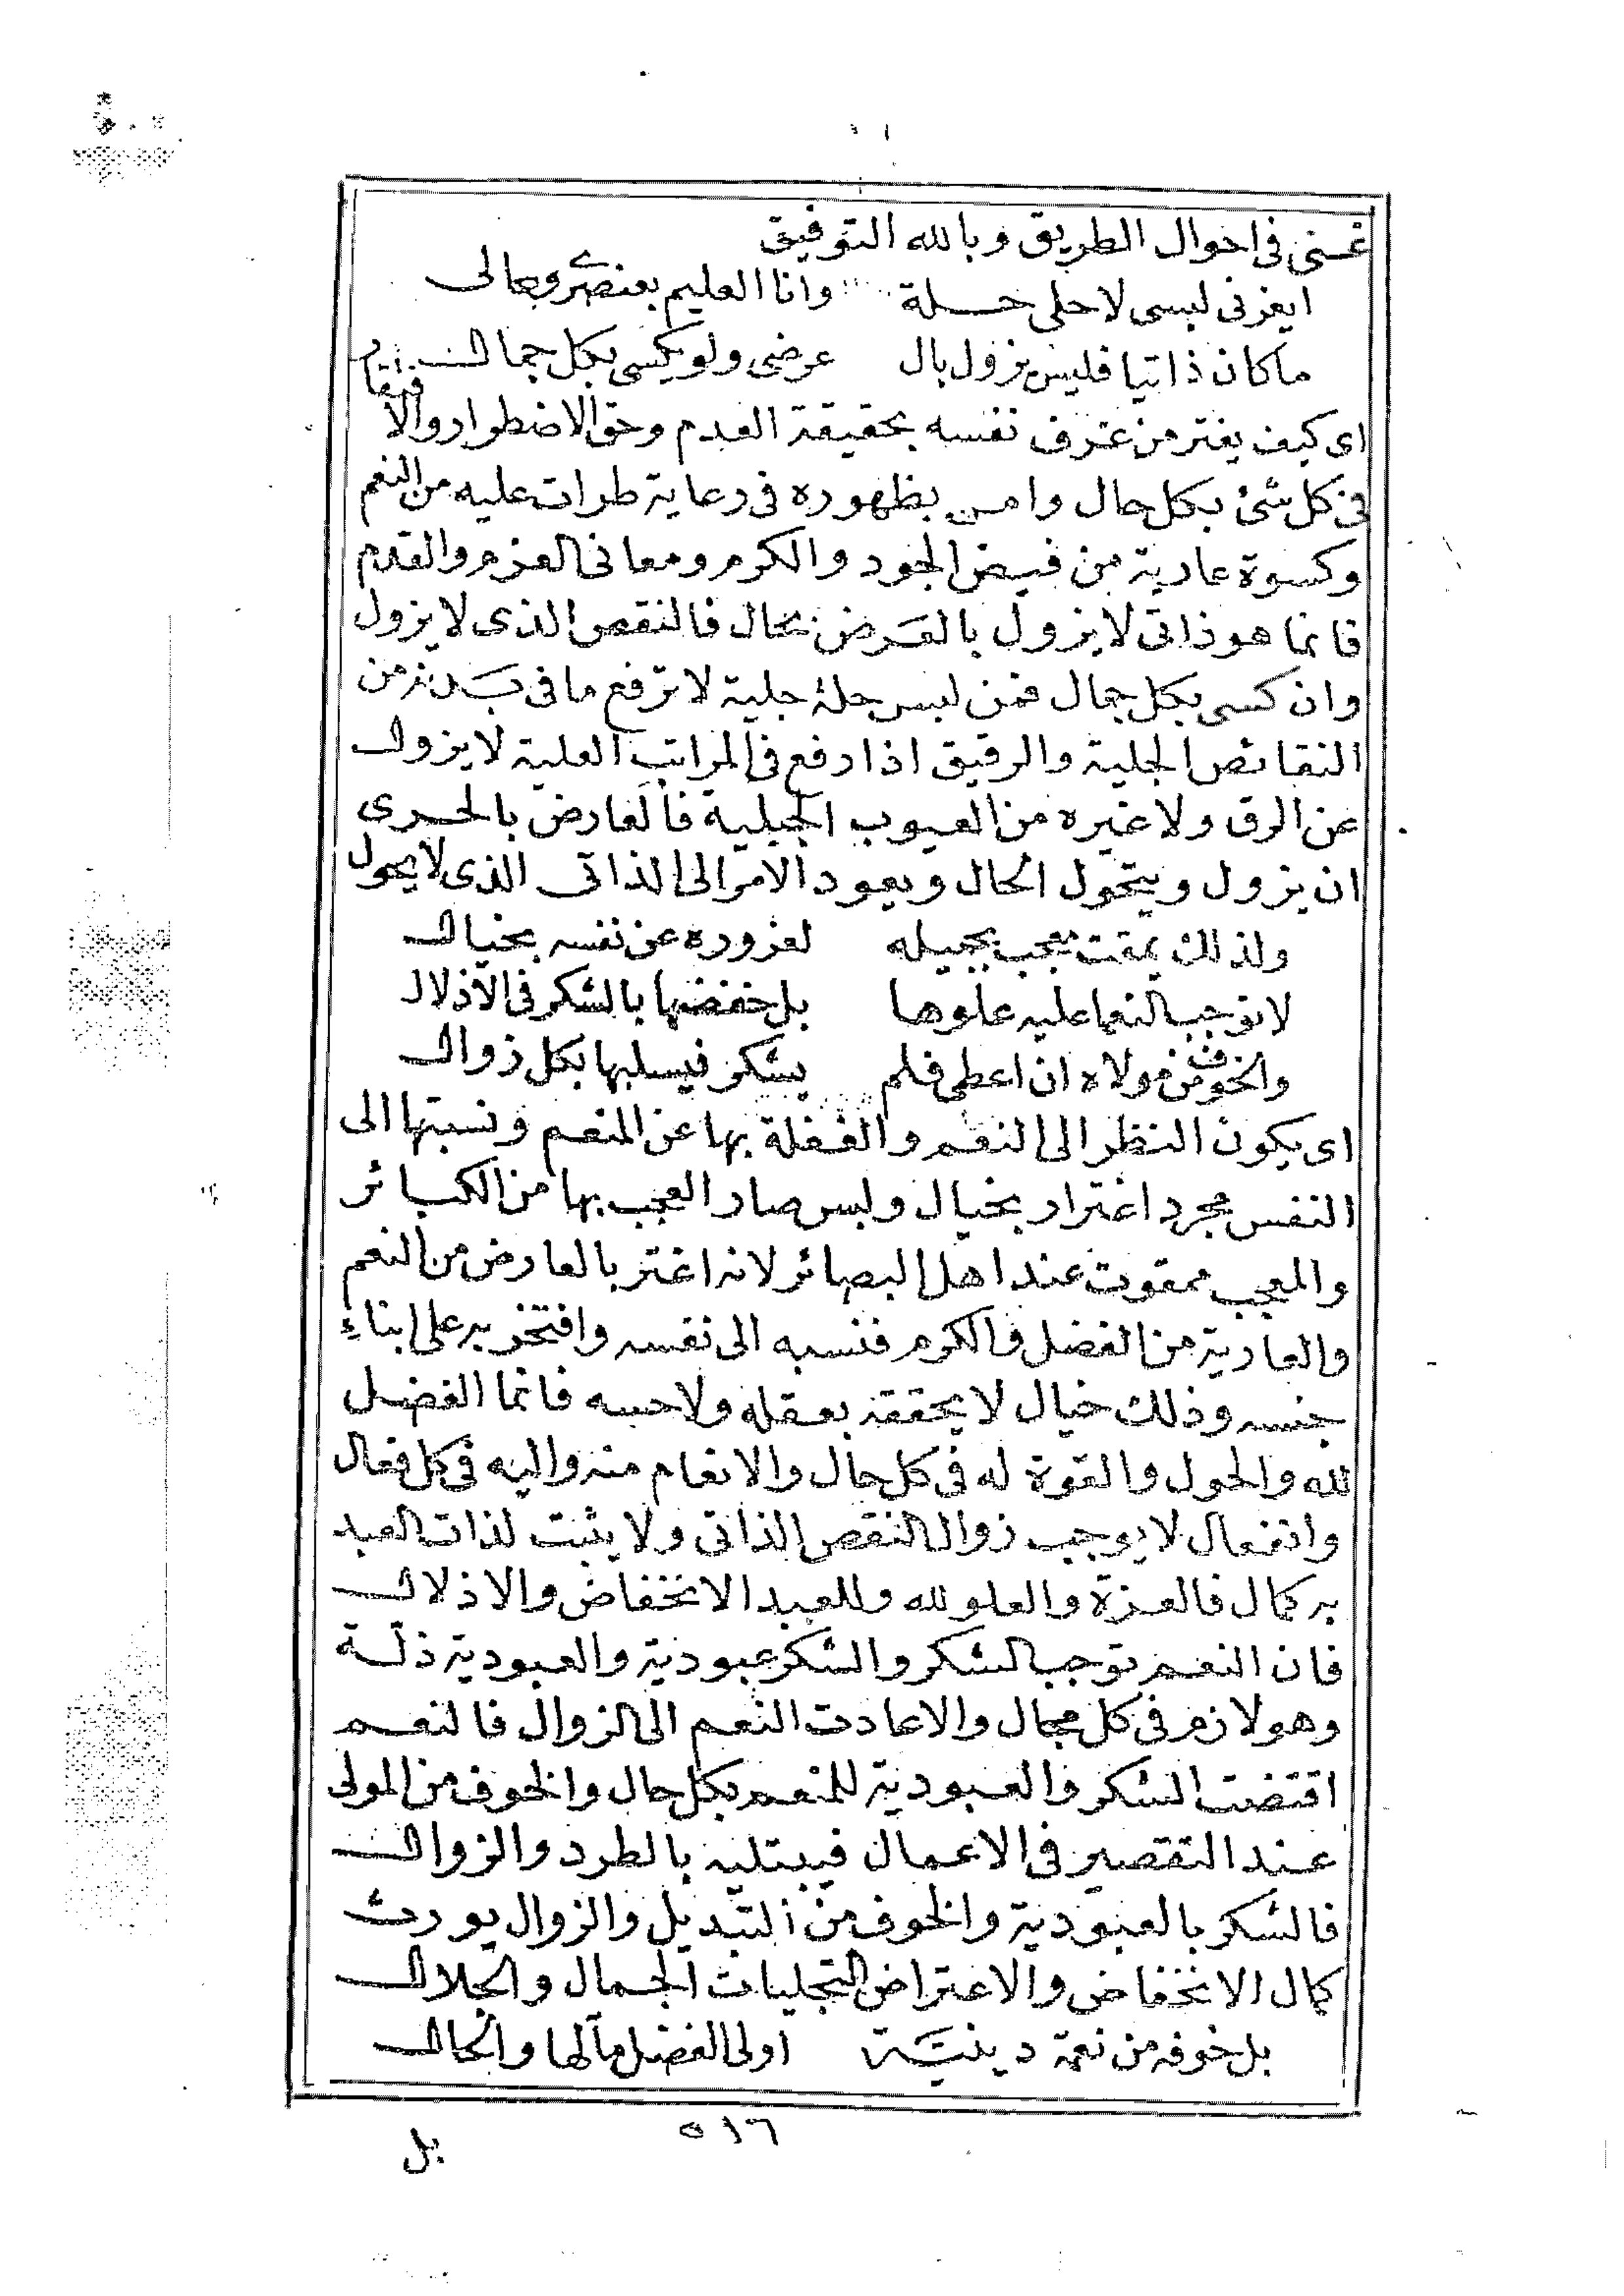 غنى في احوال الطريق وبالله التوفيق
ايغرني لبسى لاحلى حلة وانا العليم بعنصرى وبحالى
ماكان ذاتيا فليس بزول بال عرضى ولو يكسى بكل جمال
اى كيف يغتر من عرف نفسه بحقيقة العدم وحق الاضطرار والافتقار
فى كل شئ بكل حال وامن بظهوره فى رعاية طرات عليه من النعم
وكسوة عارية من فيض الجود والكرم ومعانى العزم والقدم
فانما هو ذاتى لا يزول بالعرض بحال فالنقص الذى لا يزول
وان كسى بكل جمال فمن لبس حلة جلية لا ترفع ما فى بدنه من
النقائص الجلية والرقيق اذا رفع فى المراتب العلية لا يزول
عن الرق ولا غيره من العيوب الجبلية فالعارض بالحرى
ان يزول ويتحول الحال ويعود الامر الى الذاتى الذى لا يحول
ولذلك يمقت معجب بجميله لغروره عن نفسه بخيال
لا توجب النعما عليه علوها بل خفضها بالشكر فى الاذلال
والخوف من مولاه ان اعطى فلم يشكر فيسلبها بكل زوال
اى يكون النظر الى النعم والغفلة بها عن المنعم ونسبتها الى
النفس مجرد اغترار بخيال ولبس صار العجب بها من الكبائر
والمعجب ممقوت عند اهل البصائر لانه اغتر بالعارض من النعم
والعارية من الفضل والكرم فنسبه الى نفسه وافتخر به على ابناء
جنسه وذلك خيال لا يحققه بعقله ولا حسه فانما الفضل
لله والحول والقوة له فى كل حال والانعام منه واليه فى كل فعال
وانفعال لا يوجب زوال النقص الذاتى ولا يثبت لذات العبد
به كمال فالعزة والعلو لله وللعبد الانخفاض والاذلال
فان النعم توجب الشكر والشكر عبودية والعبودية ذلة
وهو لازم فى كل مجال والاعادت النعم الى الزوال فالنعم
اقتضت الشكر والعبودية للمنعم بكل حال والخوف من المولى
عند التقصير فى الاعمال فيبتليه بالطرد والزوال
فالشكر بالعبودية والخوف من التبديل والزوال يورث
كمال الانخفاض والاعتراض التجليات الجمال والجلال
بل خوفه من نعمة دينية اولى الفضل مآلها والحال
٥١٦
بل